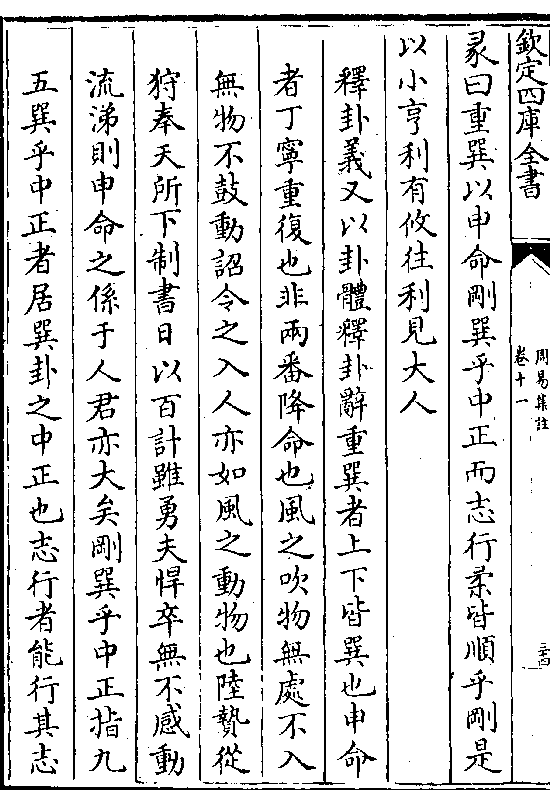 欽定四庫全書
周易集註
卷十一
三十四
彖曰重巽以申命剛巽乎中正而志行柔皆順乎剛是
以小亨利有攸往利見大人
釋卦義又以卦體釋卦辭重巽者上下皆巽也申命
者丁寧重復也非兩番降命也風之吹物無處不入
無物不鼓動詔令之入人亦如風之動物也陸贄從
狩奉天所下制書日以百計雖勇夫悍卒無不感動
流涕則申命之係于人君亦大矣剛巽乎中正指九
五巽乎中正者居巽卦之中正也志行者能行其志